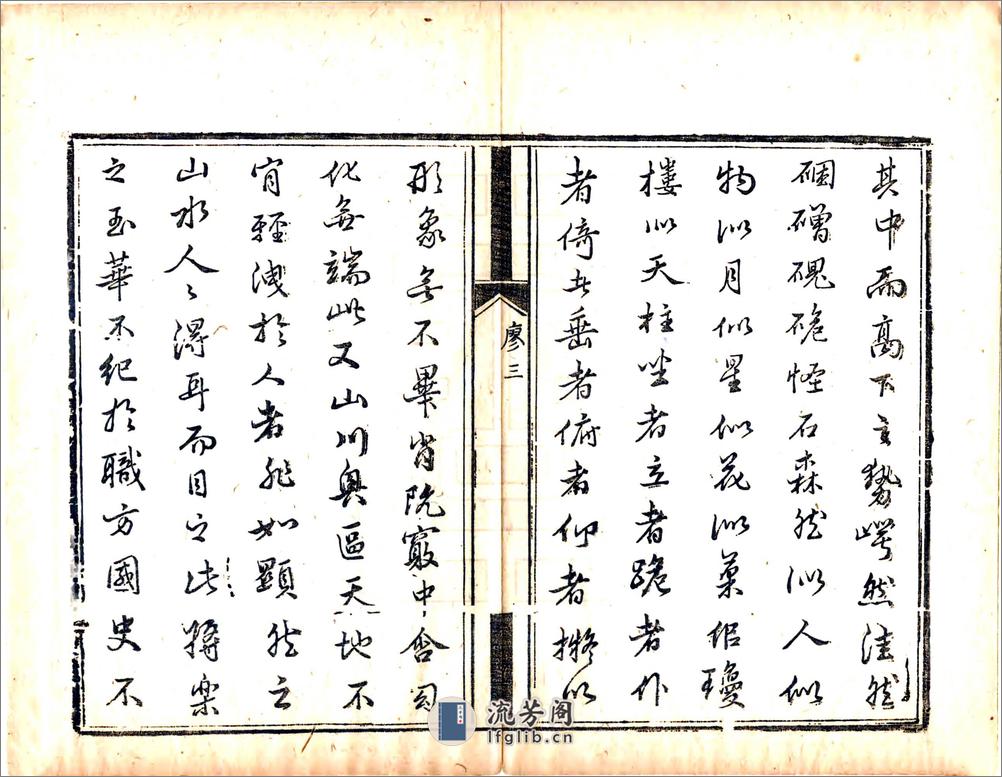 其中而高下之勢崿然洼然
磈硊怪石森然似人似
物似月似星似花似藥似瓊
樓似天柱坐者立者跪者仆
者倚者垂者俯者仰者擬以
形象無不畢肖院竅中含
化無端此又山川奥區天地不
肯輕洩於人者非如顯然之
山水人人得耳而目之此将樂
之玉華不紀於職方國史不
廖三
流芳阁
lfglib.cn